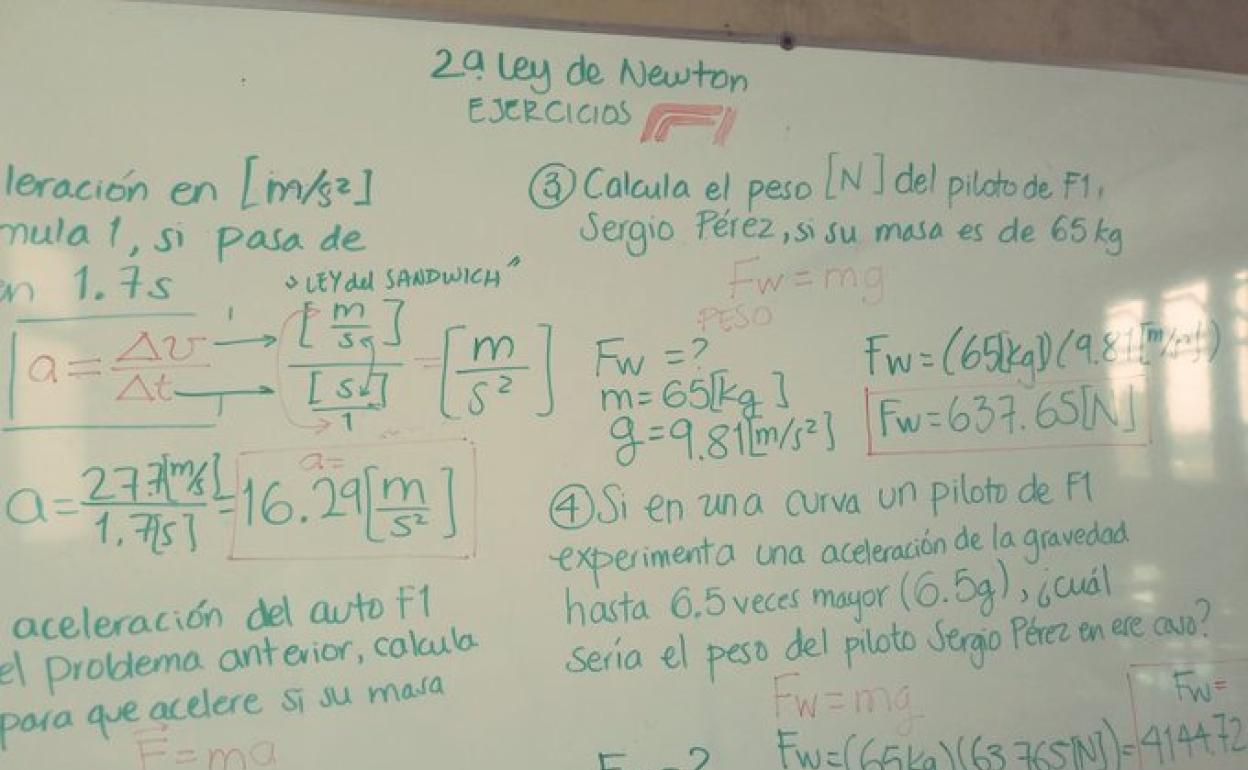 2ª Ley de Newton
EJERCICIOS F1
leración en [m/s²]
mula 1, si pasa de
en 1.7s
"LEY del SANDWICH"
a = Δv/Δt → [m/s]/[s]/1 = [m/s²]
a = 27.7[m/s]/1.7[s] = a= 16.29 [m/s²]
aceleración del auto F1
el problema anterior, calcula
para que acelere si su masa
F = ma
③ Calcula el peso [N] del piloto de F1,
Sergio Pérez, si su masa es de 65 kg
Fw = mg
PESO
Fw = ?
m = 65[kg]
g = 9.81[m/s²]
Fw = (65[kg])(9.81[m/s²])
Fw = 637.65[N]
④ Si en una curva un piloto de F1
experimenta una aceleración de la gravedad
hasta 6.5 veces mayor (6.5g), ¿cuál
sería el peso del piloto Sergio Pérez en ese caso?
Fw = mg
Fw =
Fw = (65kg)(63.765[N]) = 4144.72